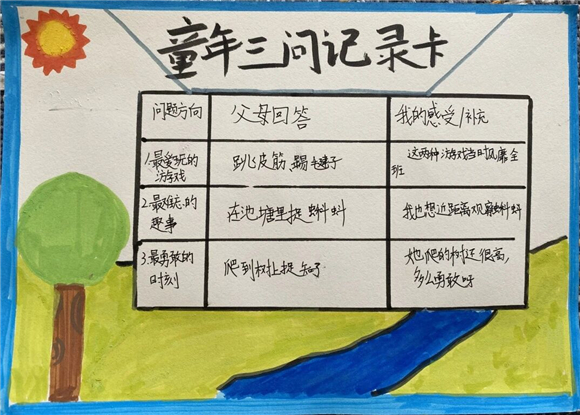 童年三问记录卡
问题方向 父母回答 我的感受/补充
1.最爱玩的
游戏
跳皮筋、踢毽子
这两种游戏当时风靡全
班
2.最难忘的
趣事
在池塘里捉蝌蚪
我也想近距离观察蝌蚪
3.最勇敢的
时刻
爬到树上捉知了
她爬的树还很高,
多么勇敢呀